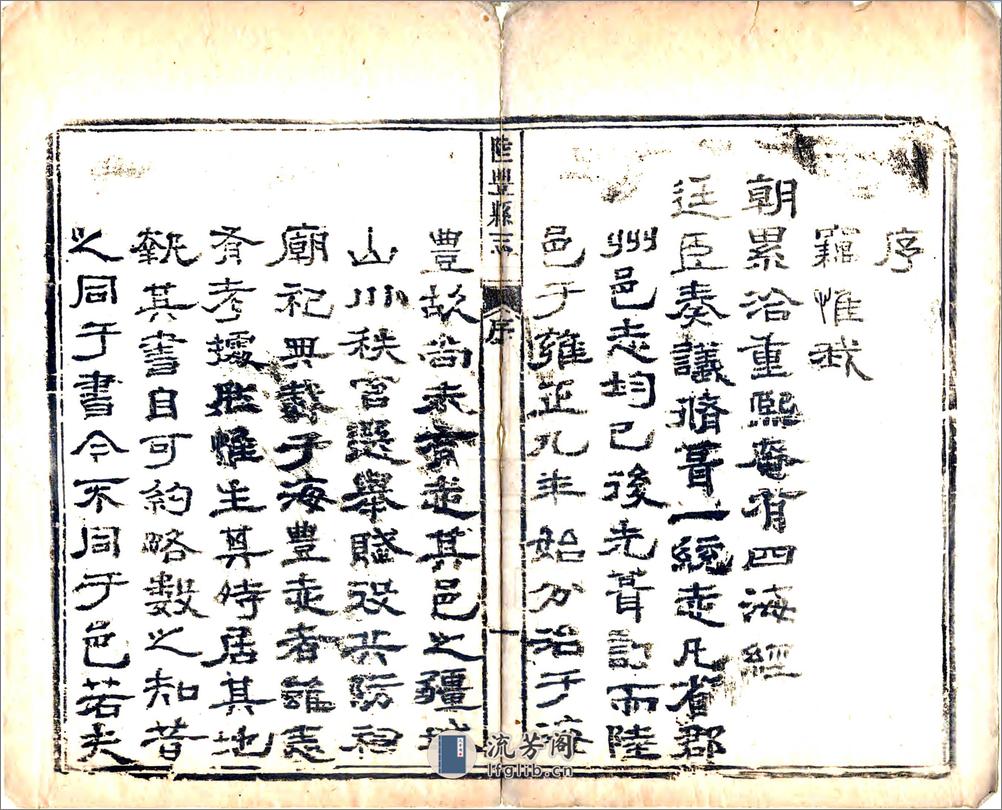 序
竊惟我
朝累洽重熙奄有四海經
廷臣奏議脩葺一統志凡省郡
州邑志均已後先葺訂而陸
邑于雍正九年始分治于海
陸豐縣志 序 一
豐故尚未有志其邑之疆域
山川秩官選舉賦役兵防祠
廟祀典載于海豐志者雖悉
有考據然惟生其時居其地
執其書自可約略數之知昔
之同于書今不同于邑若夫
流芳阁
lfglib.cn